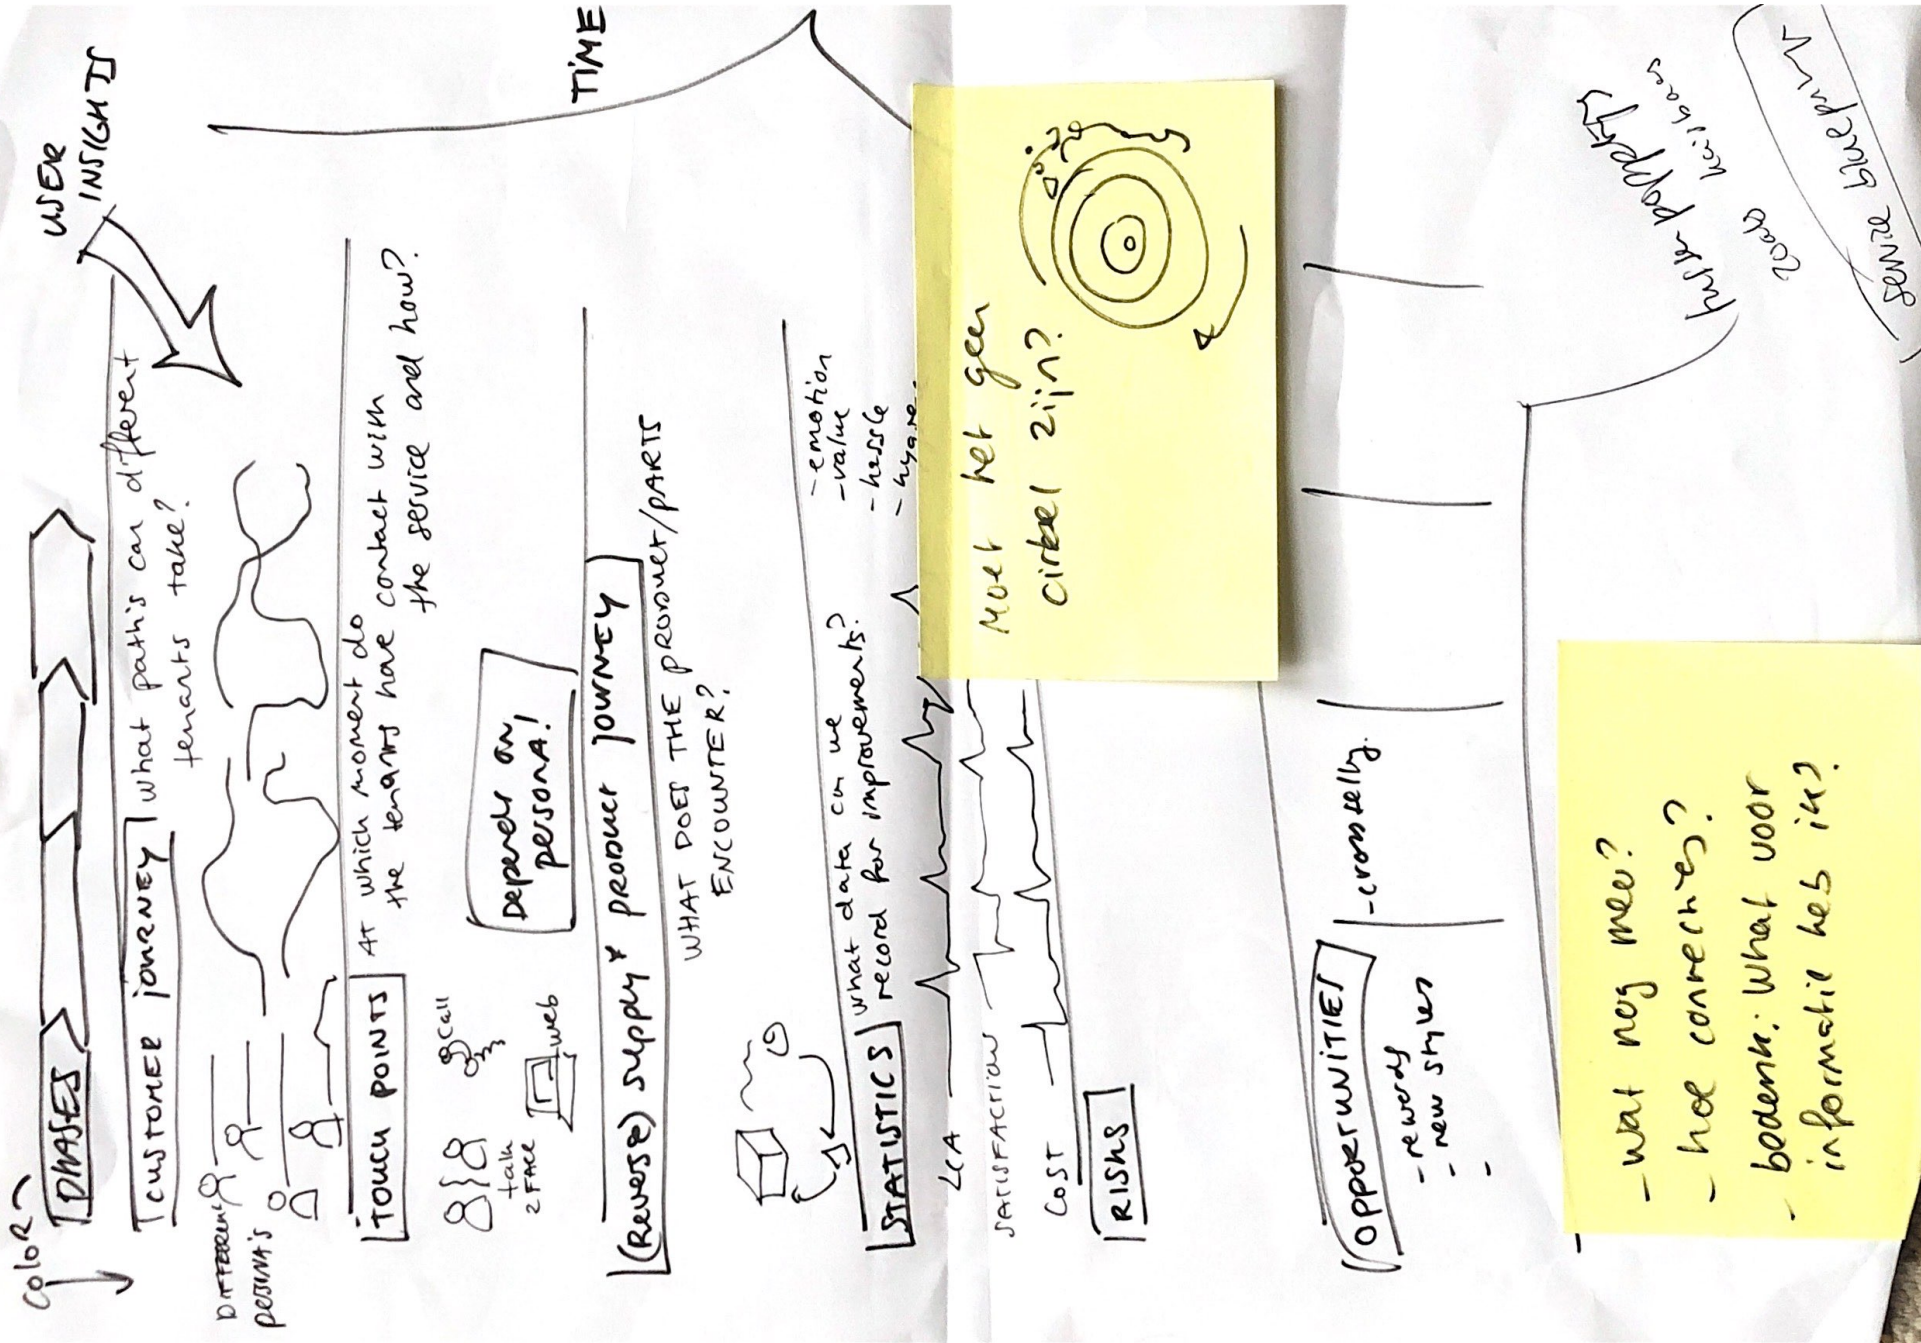 COLOR
USER
INSIGHTS
PHASES
CUSTOMER JOURNEY
what path's can different
tenants take?
DIFFERENT
PERSONA'S
TIME
TOUCH POINTS
At which moment do
the tenants have contact with
the service and how?
talk
2 FACE
call
web
Depends on
persona!
(Reverse) supply & product journey
WHAT DOES THE PRODUCT/PARTS
ENCOUNTER?
STATISTICS
what data can we
record for improvements?
- emotion
- value
- hassle
LCA
SATISFACTION
COST
Moet het geen
cirkel zijn?
RISKS
OPPORTUNITIES
- rewards
- new styles
-
- cross selly.
zoals
service blueprint
- wat nog meer?
- hoe connecties?
- bedenk: What voor
informatie heb ik?